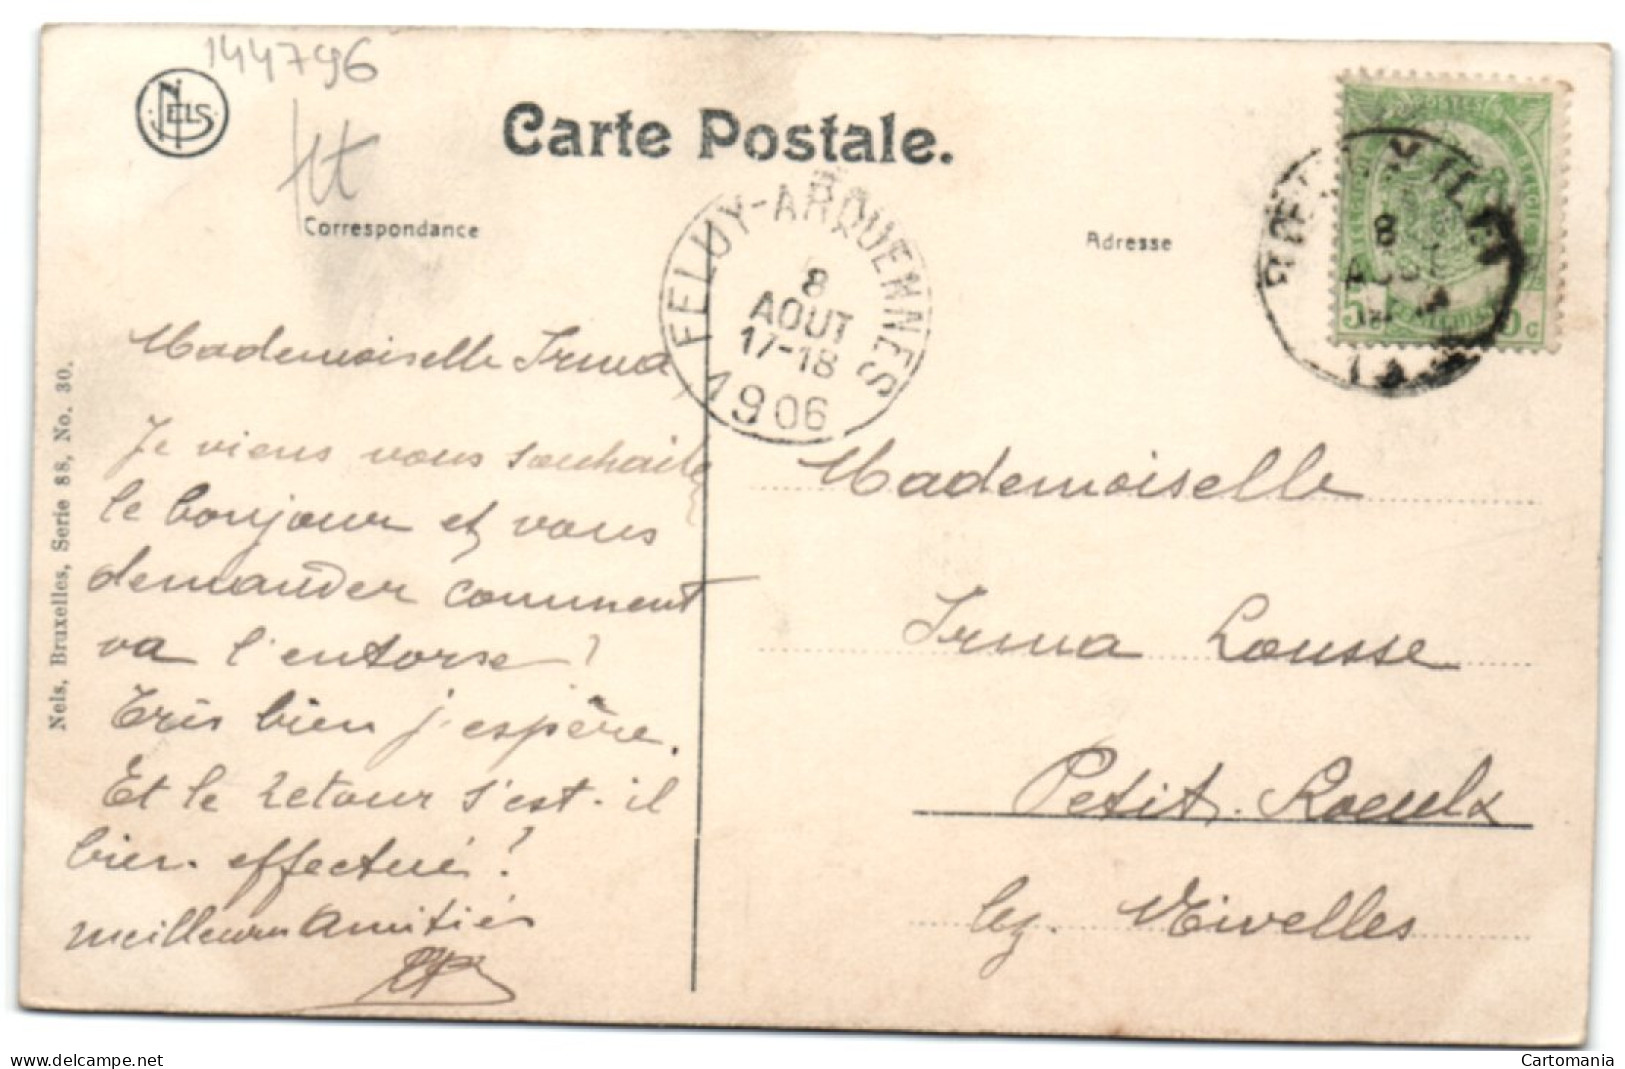 144796
NELS
tt
Carte Postale.
Correspondance
Adresse
FELUY-ARQUENNES
8
AOUT
17-18
1906
POSTES
BELGIQUE
8
AOUT
5
c
Mademoiselle Irma
Je viens vous souhaiter
le bonjour et vous
demander comment
va l'entorse?
Très bien j'espère.
Et le retour s'est-il
bien effectué?
meilleures amitiés
Nels, Bruxelles, Serie 88, No. 30.
Mademoiselle
Irma Lousse
Petit-Roeulx
lez-Nivelles
www.delcampe.net
Cartomania